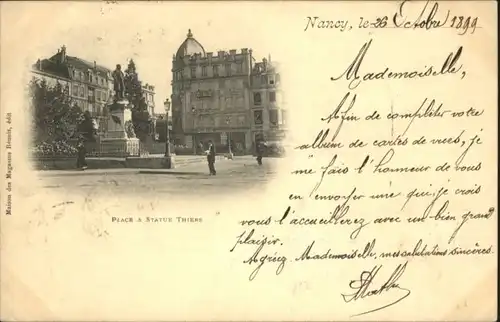 Nancy, le 26 Octobre 1899
Mademoiselle,
Afin de completer votre
album de cartes de vues, je
me fais l'honneur de vous
en envoyer une que je crois
vous l'accueillerez avec un bien grand
plaisir.
Agréez Mademoiselle, mes salutations sincères.
PLACE & STATUE THIERS
Maison des Magasins Réunis, édit